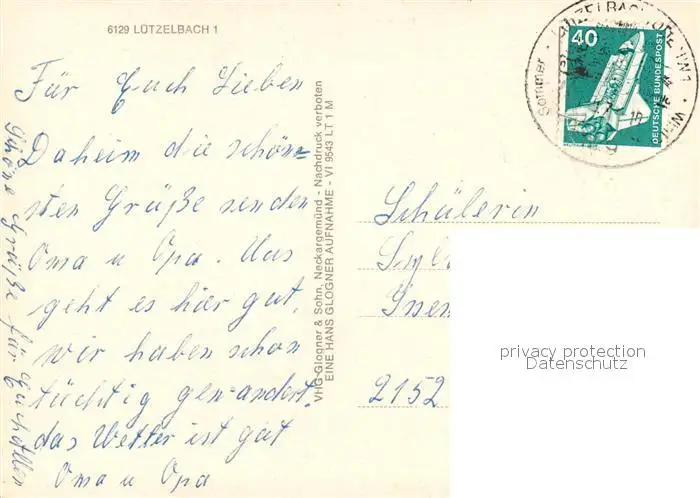 6129 LÜTZELBACH 1
Für Euch Lieben
Daheim die schön=
sten Grüße senden
Oma u Opa. Uns
geht es hier gut,
wir haben schon
tüchtig gewandert.
das Wetter ist gut
Oma u Opa
Schöne Grüße für Euch Allen
VHG Glogner & Sohn, Neckargemünd - Nachdruck verboten
EINE HANS GLOGNER AUFNAHME - VI 9543 LT 1 M
40
DEUTSCHE BUNDESPOST
Sommer
Schülerin
2152
privacy protection
Datenschutz